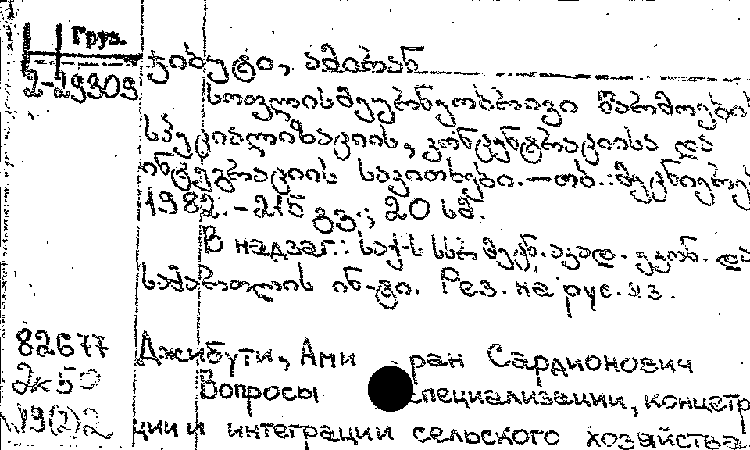 Груз.
2-29309
ჯიბუტი, ამირან
სოფლისმეურნეობრივი წარმოების
სპეციალიზაციის, კონცენტრაციისა და
ინტეგრაციის საკითხები. — თბ.: მეცნიერება
1982. - 215 გვ.; 20 სმ.
В надзаг.: საქ-ს სსრ მეცნ. აკად. ეკონ. და
სამართლის ინ-ტი. Рез. на рус. яз.
82677 Джибути, Ами ран Сардионович
2к50 Вопросы специализации, концетр
19(2)2 ции и интеграции сельского хозяйства